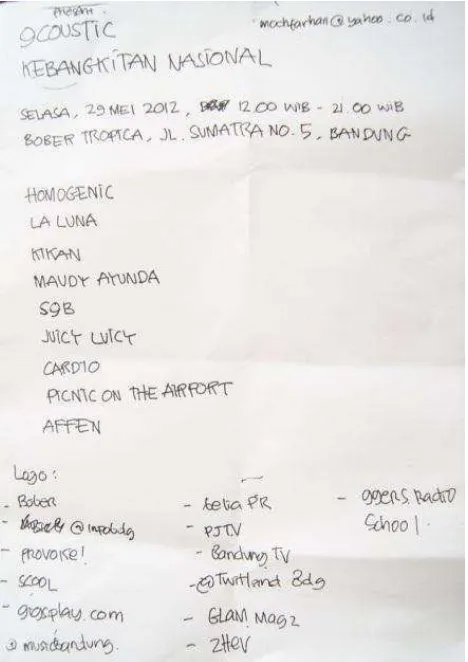 present
acoustic
mochfarhan@yahoo.co.id
KEBANGKITAN NASIONAL
SELASA, 29 MEI 2012, 12.00 WIB - 21.00 WIB
BOBER TROPICA, JL. SUMATRA NO. 5, BANDUNG
HOMOGENIC
LA LUNA
KIKAN
MAUDY AYUNDA
S9B
JUICY LUICY
CARDIO
PICNIC ON THE AIRPORT
AFFEN
Logo :
- Bober
- @infobdg
- PROVOKE!
- SCOOL
- gigsplay.com
@musicbandung.
- PR
- PJTV
- Bandung TV
- @Twitland Bdg
- GLAM Magz
- 2HEV
- ggers. Radio
School.